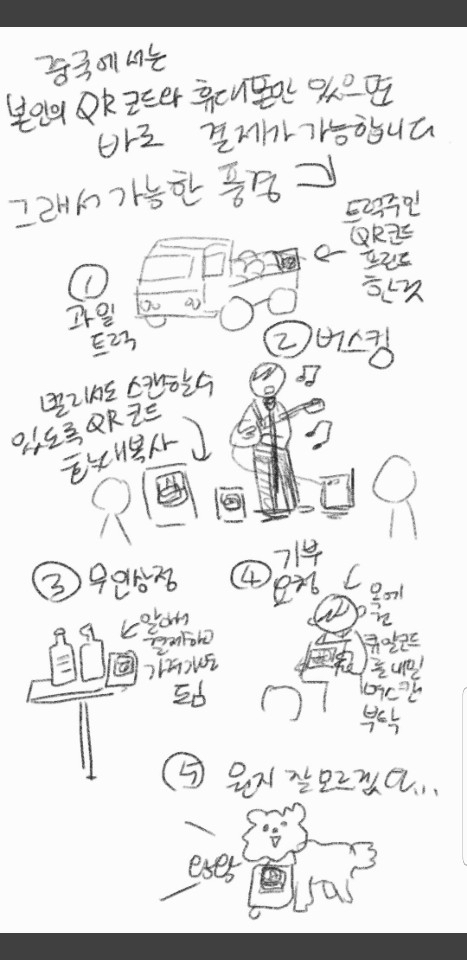 중국에서는
본인의 QR코드와 휴대폰만 있으면
바로 결제가 가능합니다
그래서 가능한 풍경
트럭주인
QR코드
프린트
한것
①
과일
트럭
② 버스킹
멀리서도 스캔할수
있도록 QR코드
확대복사
③ 무인상점
알아서
결제하고
가져가면
됨
④ 기부
요청
목에
건
큐알코드
를 내밀
며 스캔
부탁
⑤ 뭔지 잘 모르겠다...
왕왕